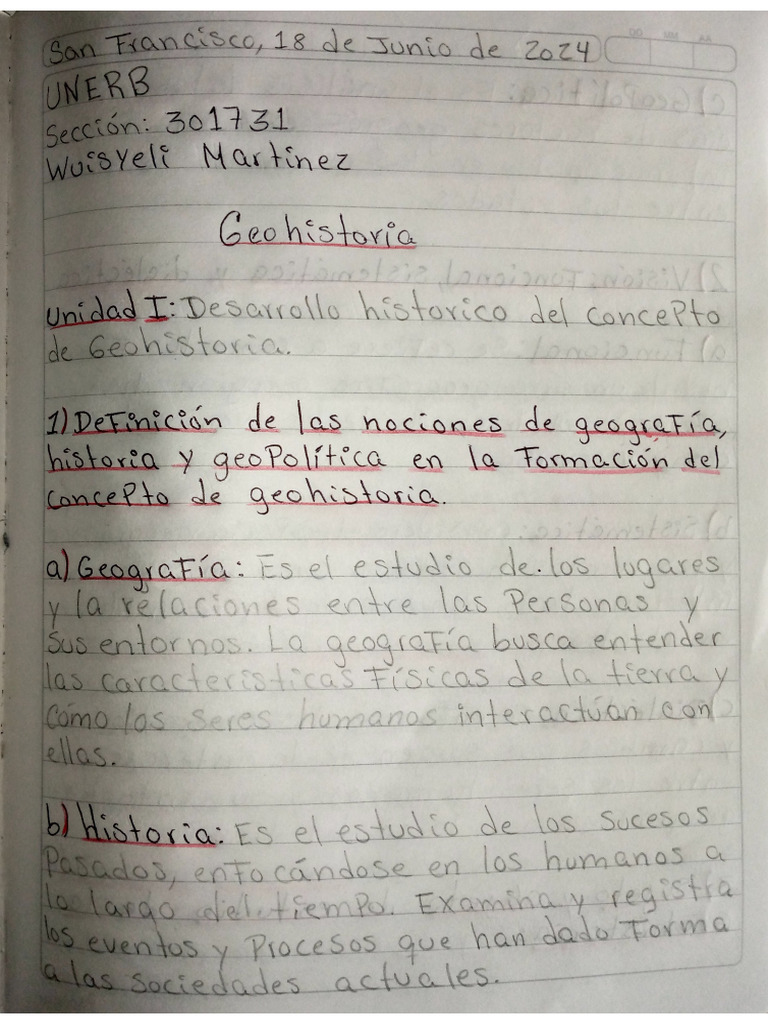 San Francisco, 18 de Junio de 2024
UNERB
Sección: 301731
Wuisyeli Martinez
Geohistoria
Unidad I: Desarrollo historico del concepto
de Geohistoria.
1) Definición de las nociones de geografía,
historia y geopolítica en la Formación del
concepto de geohistoria.
a) Geografía: Es el estudio de los lugares
y la relaciones entre las Personas y
sus entornos. La geografía busca entender
las caracteristicas Físicas de la tierra y
cómo los seres humanos interactúan con
ellas.
b) Historia: Es el estudio de los sucesos
Pasados, enfocándose en los humanos a
lo largo del tiempo. Examina y registra
los eventos y Procesos que han dado Forma
a las sociedades actuales.